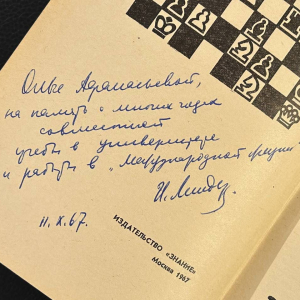 Ольке Афанасьевой,
на память о многих годах
совместной
учебы в университете
и работы в "Международной секции"
11.X.67.
ИЗДАТЕЛЬСТВО «ЗНАНИЕ»
Москва 1967